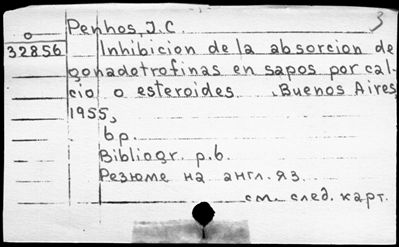 Penhos, J.C. 3
o
32856 Inhibicion de la absorcion de
gonadotrofinas en sapos por cal-
cio o esteroides. Buenos Aires,
1955,
6p.
Bibliogr. p.6.
Резюме на англ. яз.
см. след. карт.